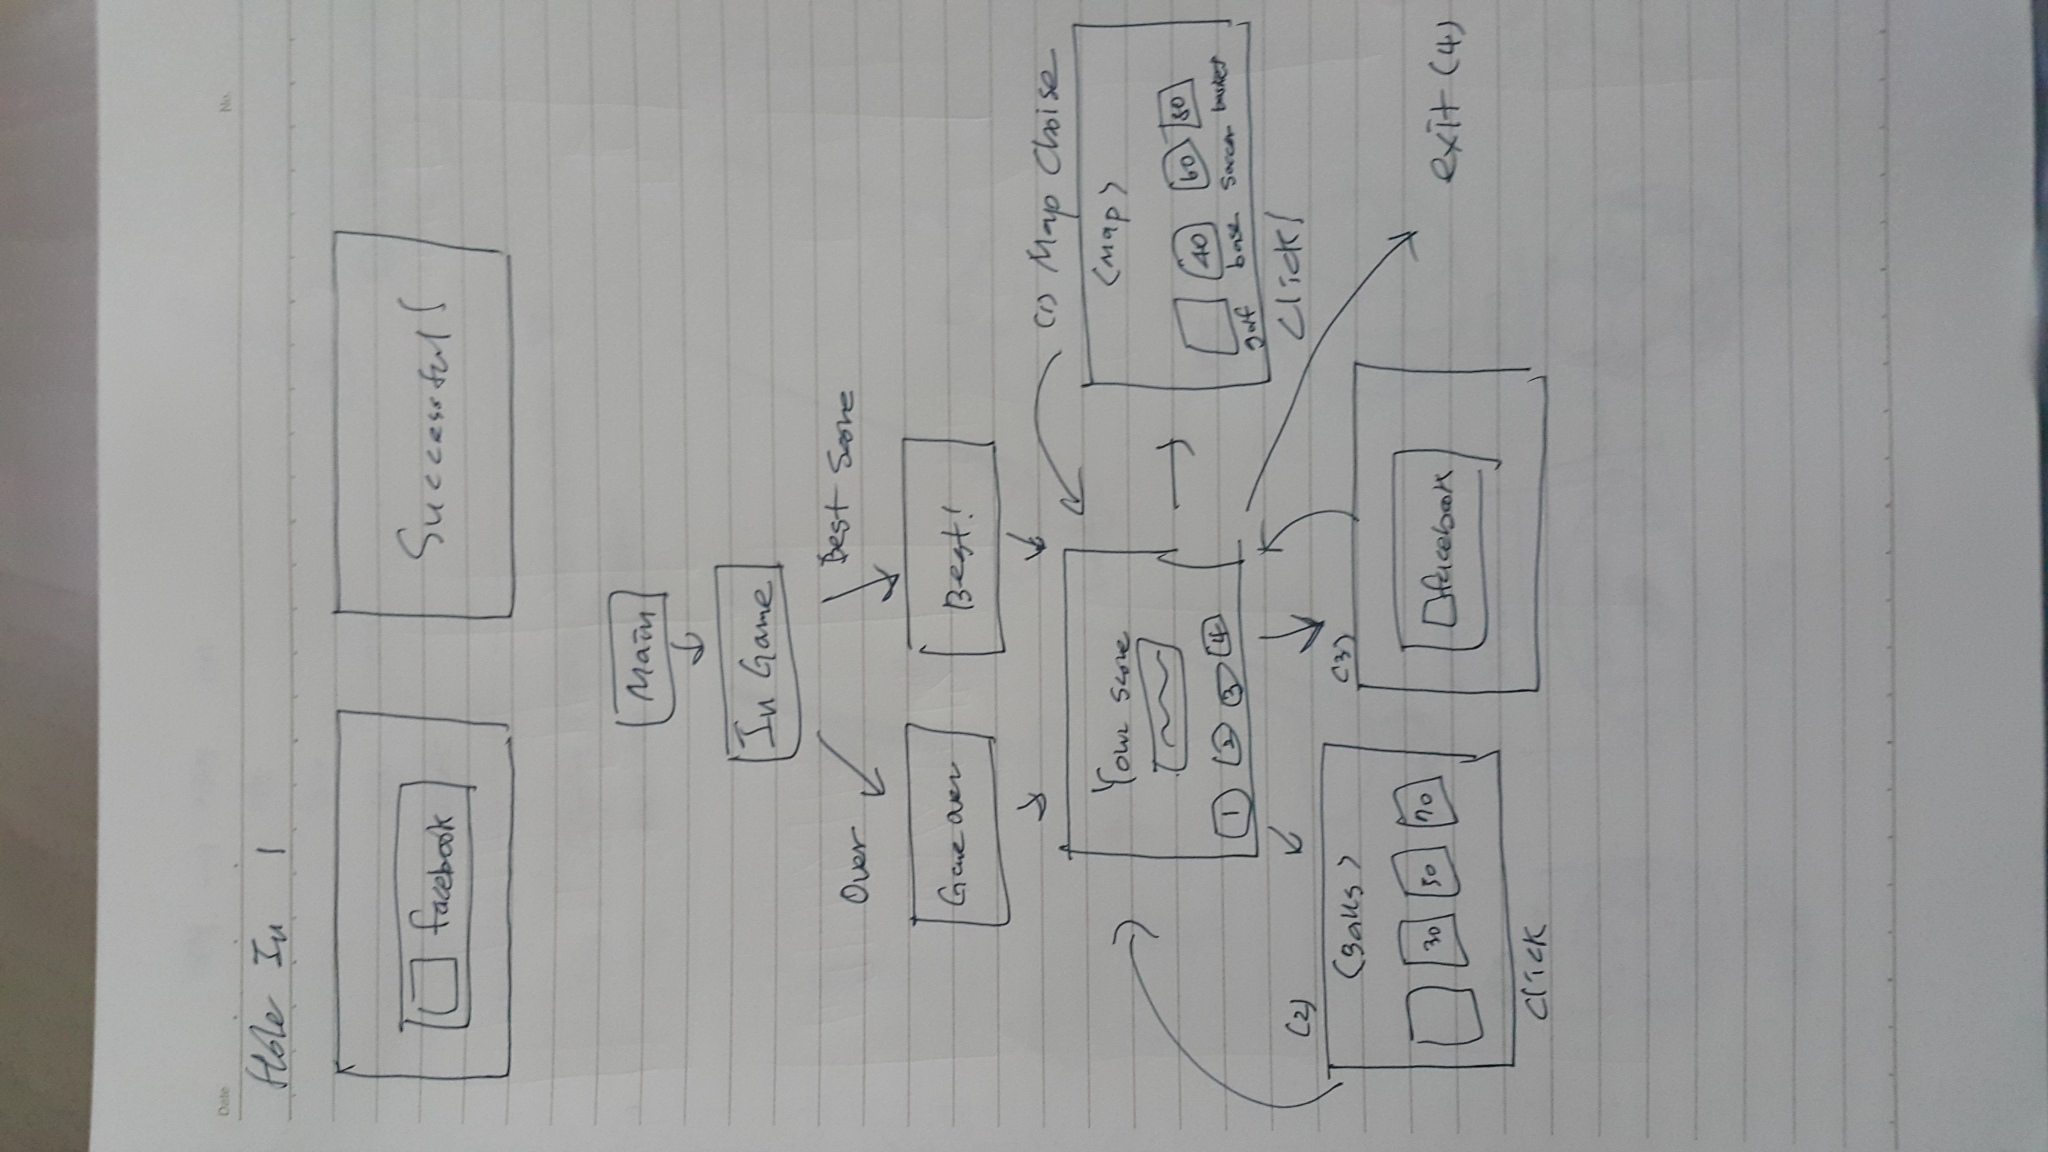 Date
No.
Hole In 1
facebook
Successful!
Main
In Game
Over
Best Score
Game over
Best!
(1) Map Choise
Your score
1 2 3 4
<Map>
40 60 80
golf base Soccer basket
Click!
(2)
<Balls>
30 50 70
Click
(3)
facebook
exit (4)